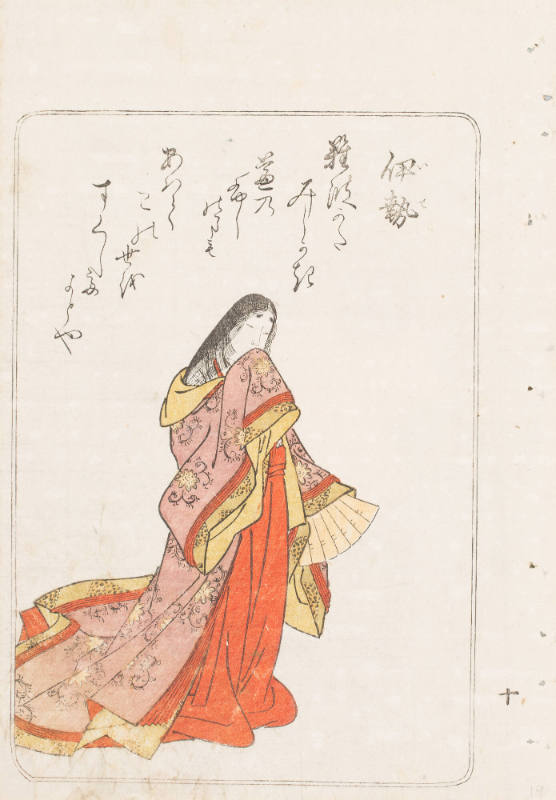 伊勢
難波かた
みしかき
蘆の
ふし
のまも
あはて
この世を
すくして
よとや
十
19